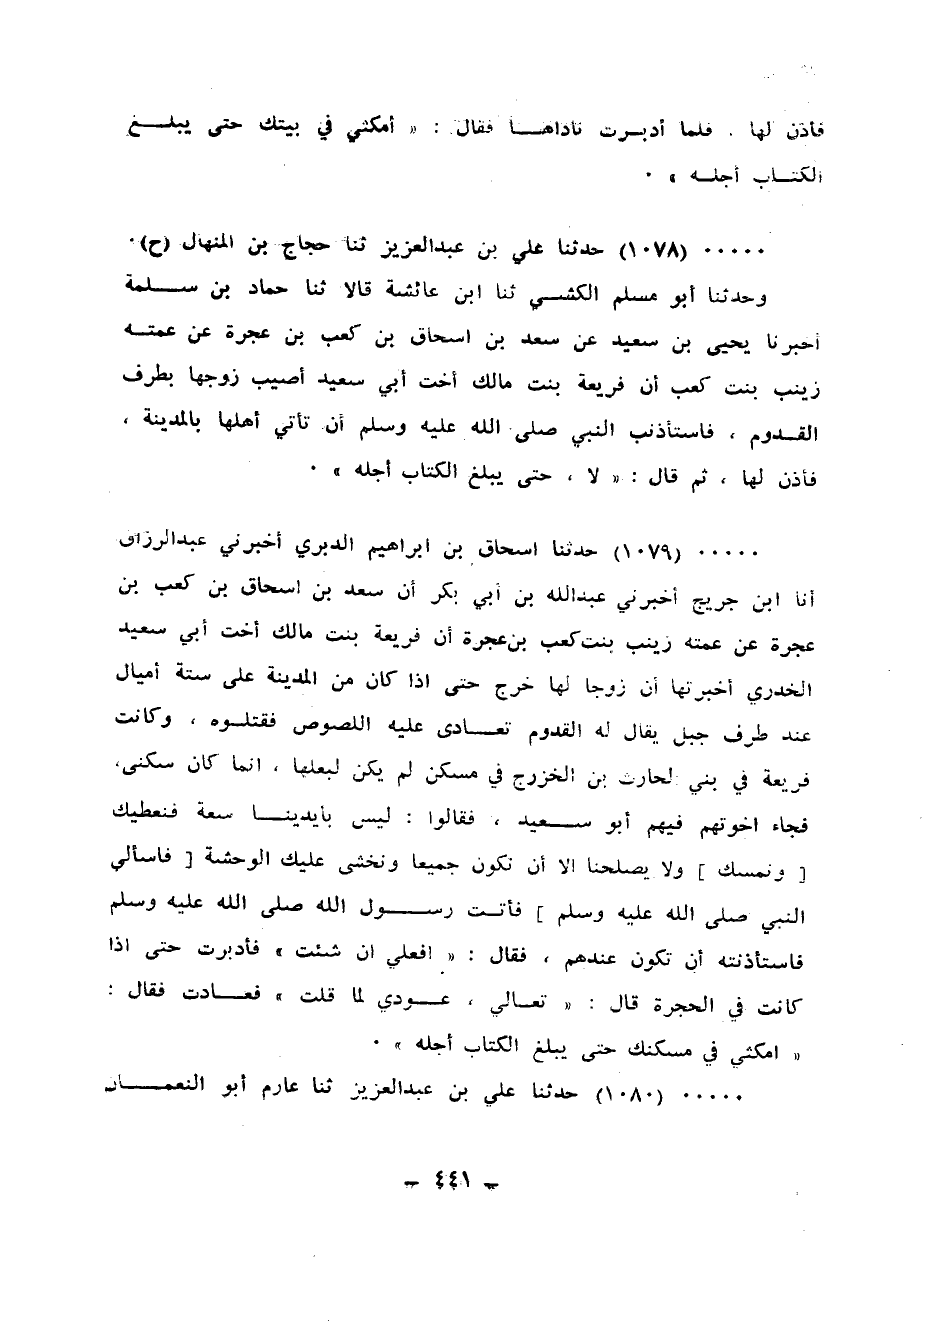 فأذن لها . فلما أدبرت ناداها فقال : « أمكثي في بيتك حتى يبلغ
الكتاب أجله » .
..... (١٠٧٨) حدثنا علي بن عبدالعزيز ثنا حجاج بن المنهال (ح).
وحدثنا أبو مسلم الكشي ثنا ابن عائشة قالا ثنا حماد بن سلمة
أخبرنا يحيى بن سعيد عن سعد بن اسحاق بن كعب بن عجرة عن عمته
زينب بنت كعب أن فريعة بنت مالك أخت أبي سعيد أصيب زوجها بطرف
القدوم ، فاستأذنب النبي صلى الله عليه وسلم أن تأتي أهلها بالمدينة ،
فأذن لها ، ثم قال : « لا ، حتى يبلغ الكتاب أجله » .
..... (١٠٧٩) حدثنا اسحاق بن ابراهيم الدبري أخبرني عبدالرزاق
أنا ابن جريج أخبرني عبدالله بن أبي بكر أن سعد بن اسحاق بن كعب بن
عجرة عن عمته زينب بنت كعب بن عجرة أن فريعة بنت مالك أخت أبي سعيد
الخدري أخبرتها أن زوجا لها خرج حتى اذا كان من المدينة على ستة أميال
عند طرف جبل يقال له القدوم تعادى عليه اللصوص فقتلوه ، وكانت
فريعة في بني لحارث بن الخزرج في مسكن لم يكن لبعلها ، انما كان سكنى،
فجاء اخوتهم فيهم أبو سعيد ، فقالوا : ليس بأيدينا سعة فنعطيك
[ ونمسك ] ولا يصلحنا الا أن نكون جميعا ونخشى عليك الوحشة [ فاسألي
النبي صلى الله عليه وسلم ] فأتت رسول الله صلى الله عليه وسلم
فاستأذنته أن تكون عندهم ، فقال : « افعلي ان شئت » فأدبرت حتى اذا
كانت في الحجرة قال : « تعالي ، عودي لما قلت » فعادت فقال :
« امكثي في مسكنك حتى يبلغ الكتاب أجله » .
..... (١٠٨٠) حدثنا علي بن عبدالعزيز ثنا عارم أبو النعمان
- ٤٤١ -